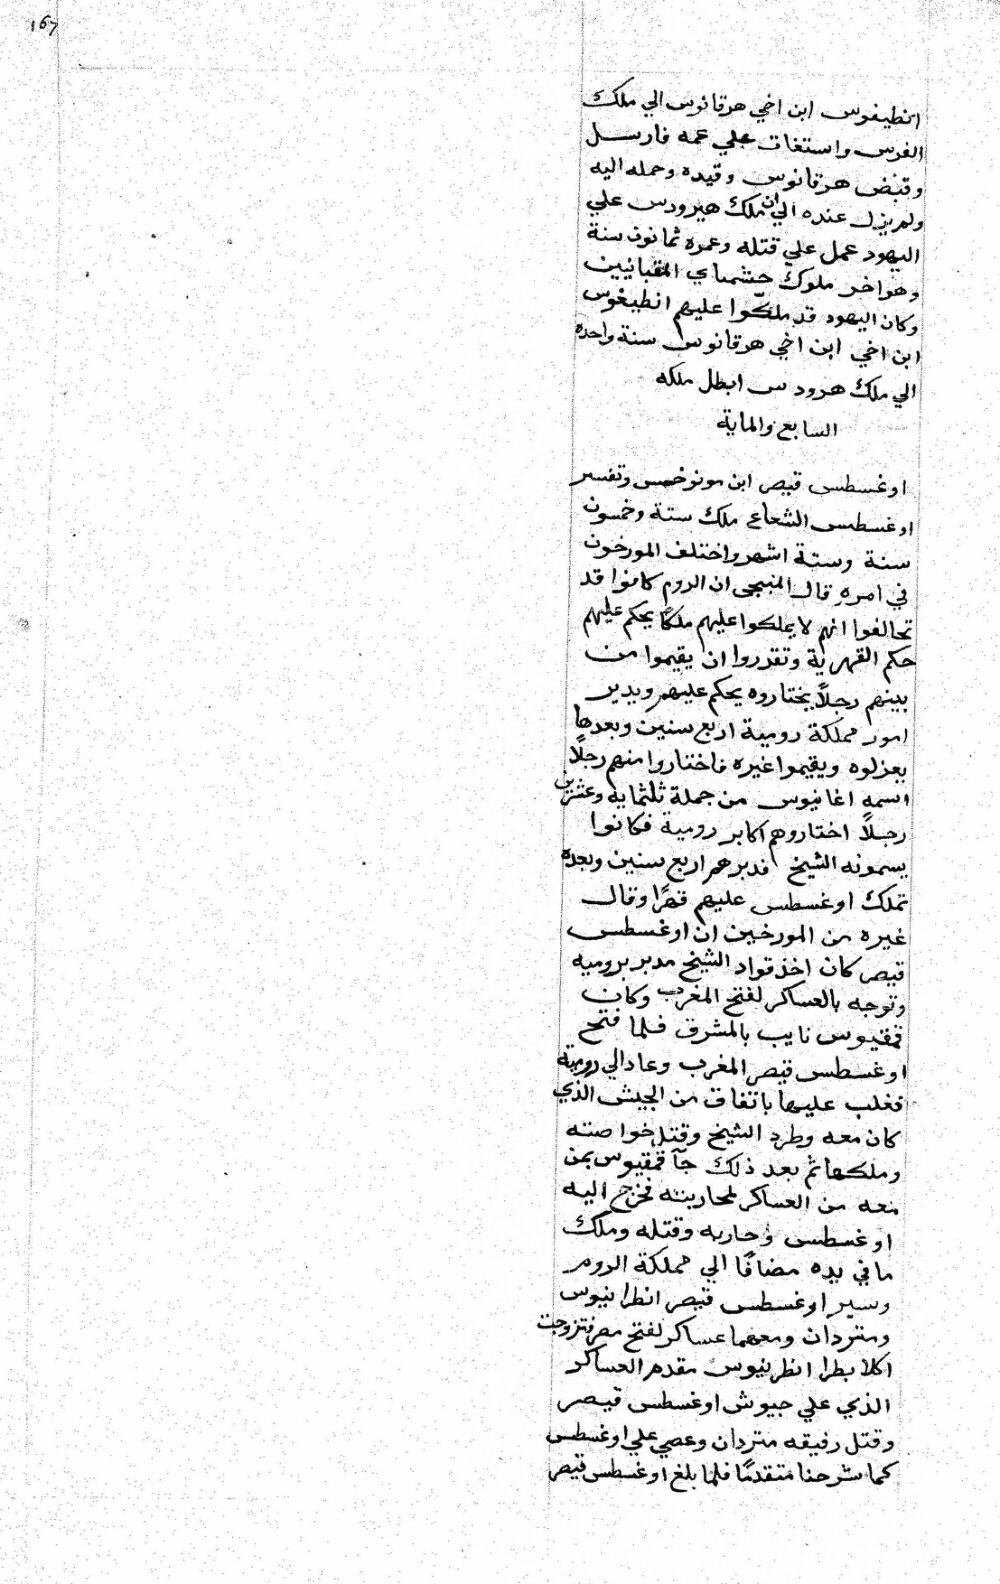 167
انطيغوس ابن اخي هرقانوس الي ملك
الفرس واستغاث علي عمه فارسل
وقبض هرقانوس وقيده وحمله اليه
ولم يزل عنده الي ان ملك هيرودس علي
اليهود عمل علي قتله وعمره ثمانون سنة
وهو اخر ملوك حشمناي المقبانيين
وكان اليهود قد ملكّوا عليهم انطيغوس
ابن اخي ابن اخي هرقانوس سنة واحده
الي ملك هرودس ابطل ملكه
السابع والماية
اوغسطس قيصر ابن مونوخس وتفسير
اوغسطس الشعاع ملك ستة وخمسون
سنة وستة اشهر واختلف المورخون
في امره قال المنبجي ان الروم كانوا قد
تحالفوا انهم لا يملكوا عليهم ملكًا يحكم عليهم
حكم القهرية وتقدروا ان يقيموا من
بينهم رجلاً يختاروه يحكم عليهم ويدير
امور مملكة رومية اربع سنين وبعدها
يعزلوه ويقيموا غيره فاختاروا منهم رجلاً
اسمه اغانيوس من جملة ثلثماية وعشرين
رجلاً اختاروهم اكابر رومية فكانوا
يسمونه الشيخ فدبرهم اربع سنين وبعده
تملك اوغسطس عليهم قهرًا وقال
غيره من المورخين ان اوغسطس
قيصر كان اخذ قواد الشيخ مدبر برومية
وتوجه بالعساكر لفتح المغرب وكان
قمقيوس نايب بالمشرق فلما فتح
اوغسطس قيصر المغرب وعاد الي رومية
فغلب عليها باتفاق من الجيش الذي
كان معه وطرد الشيخ وقتل خواصته
وملكها ثم بعد ذلك جآ قمقيوس بمن
معه من العساكر لمحاربته فخرج اليه
اوغسطس وحاربه وقتله وملك
ما في يده مضافًا الي مملكة الروم
وسير اوغسطس قيصر انطرانيوس
ومتردان ومعهما عساكر لفتح مصر فتزوجت
اكلابطرا انطرنيوس مقدم العساكر
الذي علي جيوش اوغسطس قيصر
وقتل رفيقه متردان وعصي علي اوغسطس
كما شرحنا متقدمًا فلما بلغ اوغسطس قيصر